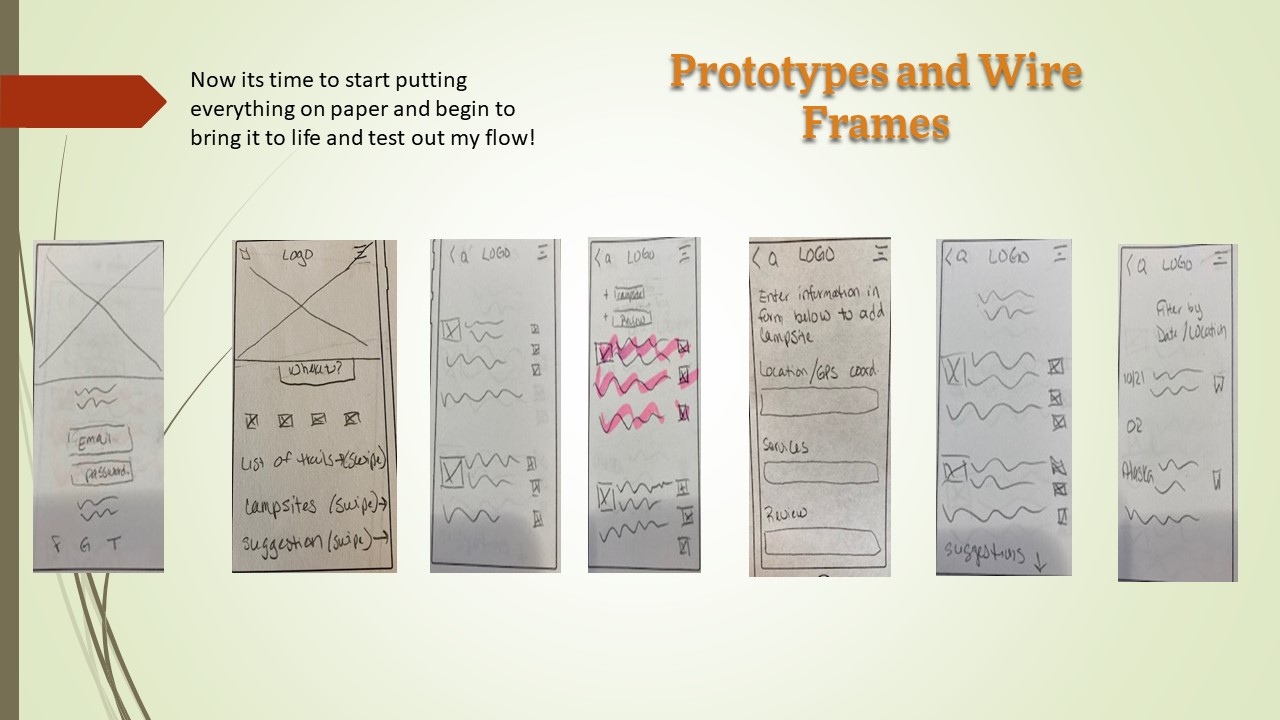 Now its time to start putting
everything on paper and begin to
bring it to life and test out my flow!
Prototypes and Wire
Frames
EMAIL
password
F G T
Logo
Where to?
List of trails→(swipe)
campsites (swipe)→
suggestion (swipe)→
< Q LOGO
< Q LOGO
+ Campsite
+ Review
< Q LOGO
Enter information in
form below to add
Campsite
Location/GPS coord.
Services
Review
< Q LOGO
suggestions ↓
< Q LOGO
Filter by
Date/Location
10/21
OR
Alaska